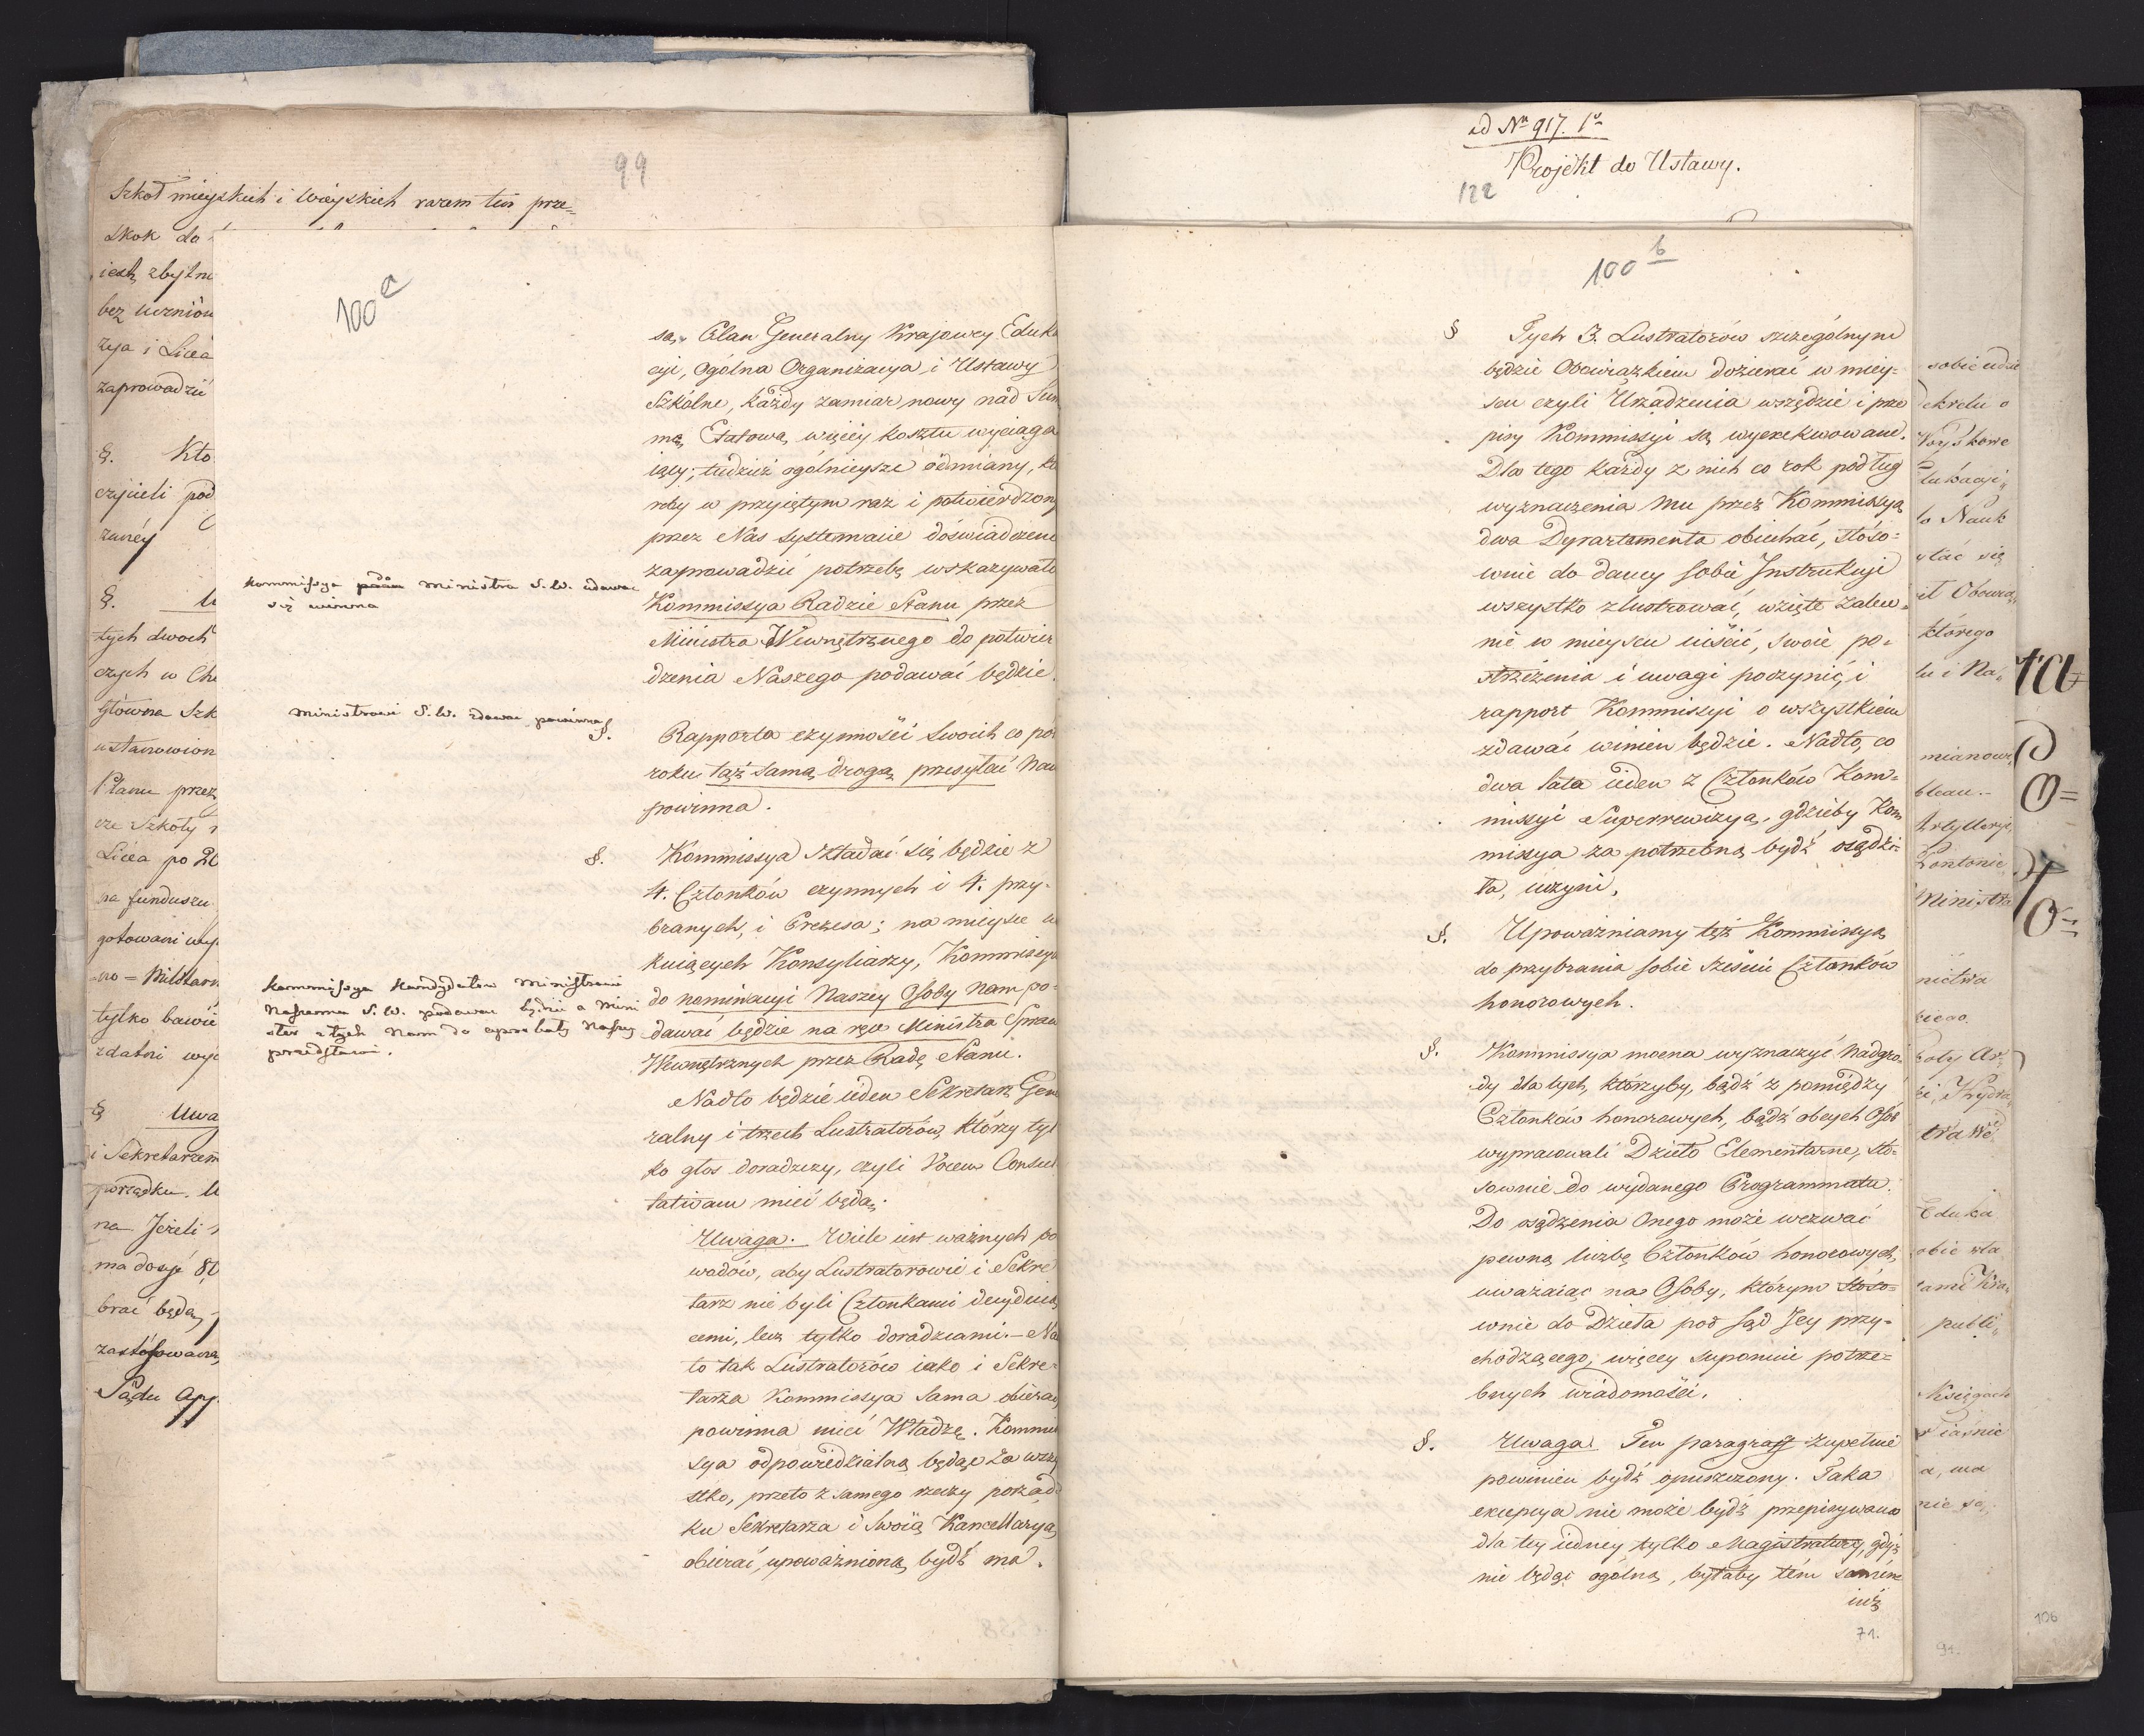 99
Szkoł mieyskich i wieyskich razem tu prze=
skok do
iest zbytni
bez uczniów
zya i Licea
zaprowadzić
§. Kto
czycieli pod
zanéy
§.
tych dwoch
czych w
główna Szk
ustanowion
Planu przez
cze Szkoły
Licea po 20
na funduszu
gotowani
tylko bawić
zdatni
§ Uwa
i Sekretarzem
porządku.
na Jeżeli
ma dosyć
brać będą
zastosowana
Sądu App.
100 a
są, Plan Generalny Kraiowey Eduka
cyi, Ogólna Organizacya i Ustawy
Szkólne, każdy zamiar nowy nad Sum
mę Etatową więcéy kosztu wyciąga
iący; tudzież ogólnieysze odmiany, kt
reby w przyiętym raz i potwierdzony
przez Nas systemacie doświadczeni
zaprowadzić potrzebę wskazywało
Kommissya Radzie Stanu przez
Ministra Wewnętrznego do potwier
dzenia Naszego podawać będzie.
kommissya Ministra S. W. udawać
się winna
Ministrowi S. W. zdawać powinna
§. Rapporta czynności swoich co pół
roku tąż samą drogą przesyłać Nam
powinna.
§. Kommissya składać się będzie z
4. Członków czynnych i 4. przy-
branych, i Prezesa; na mieysce w
kuiących Konsyliarzy, Kommissya
do nominacyi Naszey Osoby Nam po-
dawać będzie na ręce Ministra Spraw
Wewnętrznych przez Radę Stanu.
kommissya kandydatów Ministrowi
Naszemu S. W. podawać będzie a Mini
ster z tych Nam do aprobaty Naszey
przedstawi.
Nadto będzie ieden Sekretarz Gene
ralny i trzech Lustratorów, którzy tyl
ko głos doradczy, czyli Vocem Consul
tativam mieć będą.
Uwaga. Wiele iest ważnych po
wodów, aby Lustratorowie i Sekre
tarz nie byli Członkami decyduią
cemi, lecz tylko doradczami. – Na
to tak Lustratorów iako i Sekre-
tarza Kommissya sama obierać
powinna mieć Władzę. Kommis
sya odpowiedzialną będąc za wszy
stko, przeto z samego rzeczy porząd
ku Sekretarza i swoią Kancellaryą
obierać upoważnioną bydź ma.
ad Nrn 917. 1o
Projekt do Ustawy.
122
100 b
§ Tych 3. Lustratorów szczególnym
będzie Obowiązkiem dozierać w miey=
scu czyli Urządzenia wszędzie i prze
pisy Kommissyi są wyexekwowane.
Dla tego każdy z nich co rok podług
wyznaczenia mu przez Kommissyą
dwa Departamenta obiechać, stóso=
wnie do daney sobie Instrukcyi
wszystko zlustrować, wzięte zalece-
nie w mieyscu uiścić, swoie po-
strzeżenia i uwagi poczynić, i
rapport Kommissyi o wszystkiem
zdawać winien będzie. Nadto, co
dwa lata ieden z Członków Kom-
missyi Superrewizyą, gdzieby Kom
missya za potrzebną bydź osądzi-
ła, uczyni.
§. Upoważniamy też Kommissyą
do przybrania sobie sześciu Członków
honorowych.
§. Kommissya mocna wyznaczyć nadgro-
dy dla tych, którzyby, bądź z pomiędzy
Członków honorowych, bądź obcych Osób
wypracowali Dzieło Elementarne, sto-
sownie do wydanego Programmatu.
Do osądzenia Onego może wezwać
pewną liczbę Członków honorowych,
uważaiąc na Osoby, którym stóso-
wnie do Dzieła pod sąd Jey przy-
chodzącego, więcey suponuie potrze-
bnych wiadomości.
§. Uwaga. Ten paragraf zupełnie
powinien bydź opuszczony. Taka
excepcya nie może bydź przepisywana
dla tey iedney tylko Magistratury, gdyż
nie będąc ogólną, byłaby tém samém
iuż
71.
sobie udzie
Dekretu o
Woyskowe
Edukacyi
do Nauk
ytać się
Obowią
którego
lu i Na
mianowi
bleau.
Artylleryi
Pontonie
Ministra
nictwa
kiego
Eduka
obie sta
cami Kra
publi
Xsięgach
a, ma
nie są
91.
106